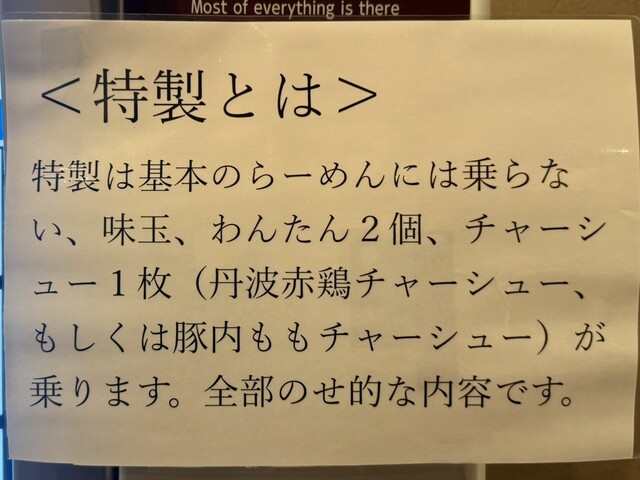 Most of everything is there
＜特製とは＞
特製は基本のらーめんには乗らな
い、味玉、わんたん２個、チャーシ
ュー１枚（丹波赤鶏チャーシュー、
もしくは豚内ももチャーシュー）が
乗ります。全部のせ的な内容です。